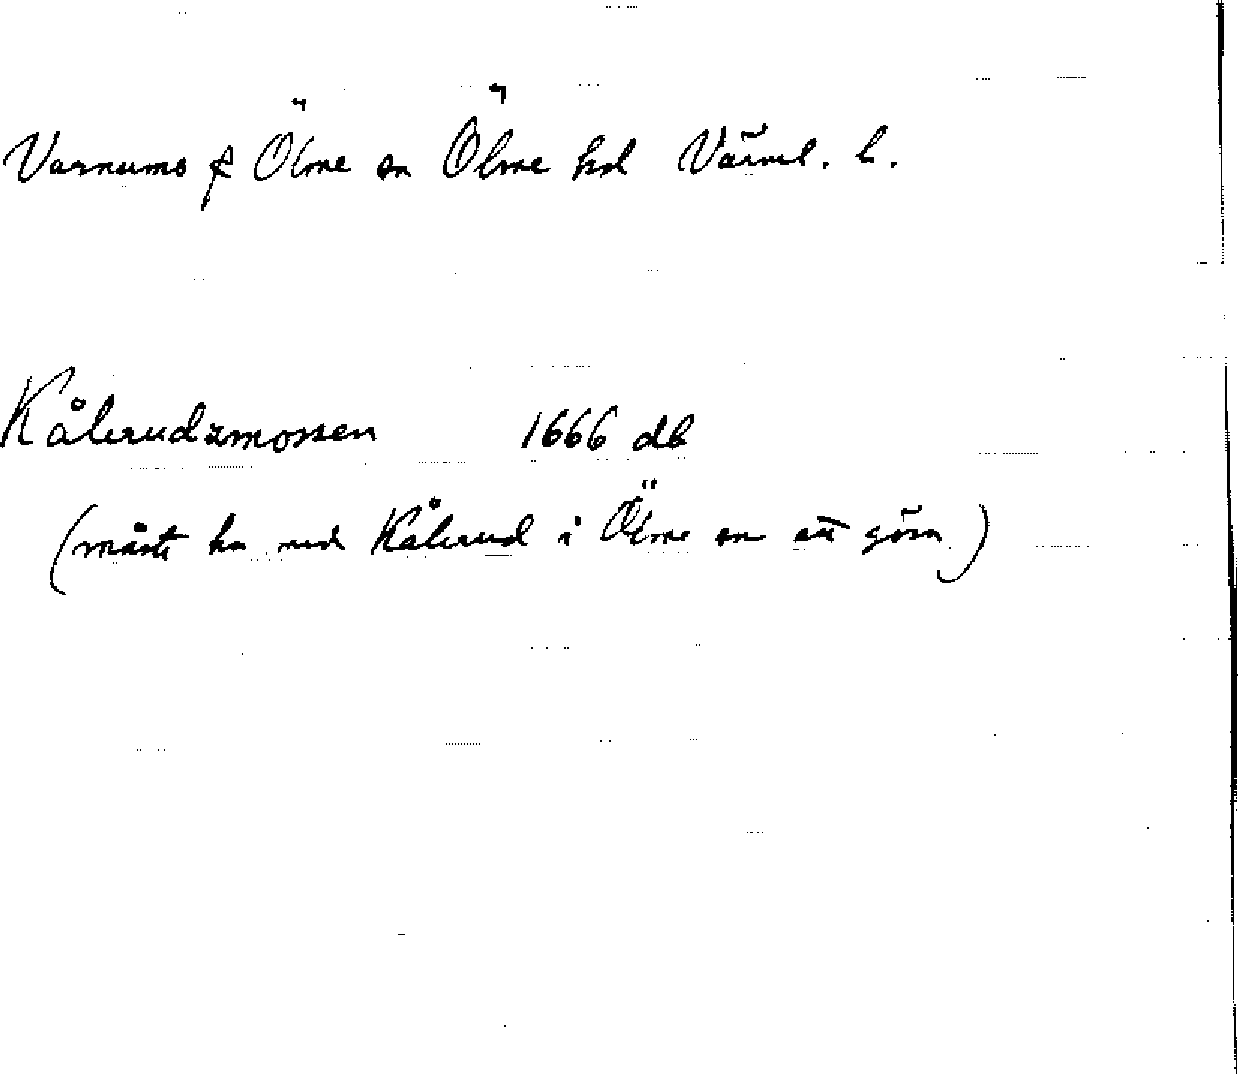 Varnums f Ölme sn Ölme hd Värml. l.
Kålerudzmossen 1666 db
(måste ha med Kålerud i Ölme sn att göra.)